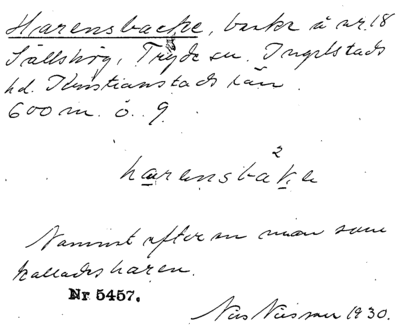 Harensbacke, backe å nr. 18
Sällshög, Tryde sn. Ingelstads
hd. Kristianstads län.
600 m. ö. g.
2
harensbake
Namnet efter en man som
kallades haren.
Nr 5457.
Nils Nilsson 1930.